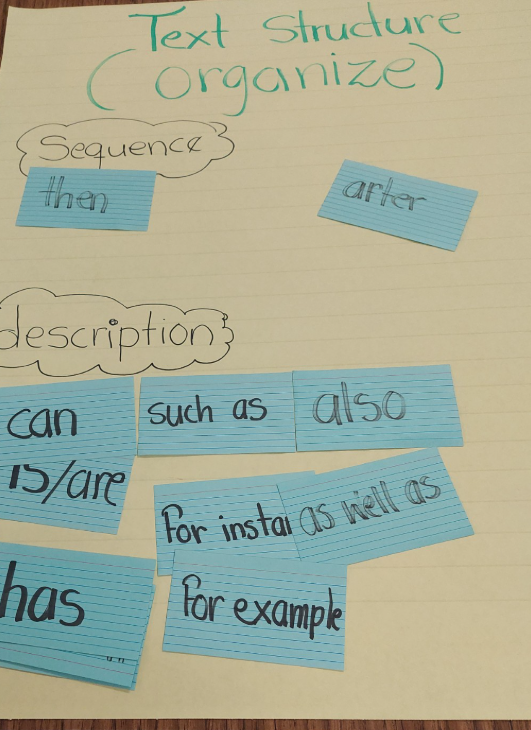 Text Structure
(organize)
Sequence
then
arter
description
can
such as
also
is/are
For instan
as well as
has
For example